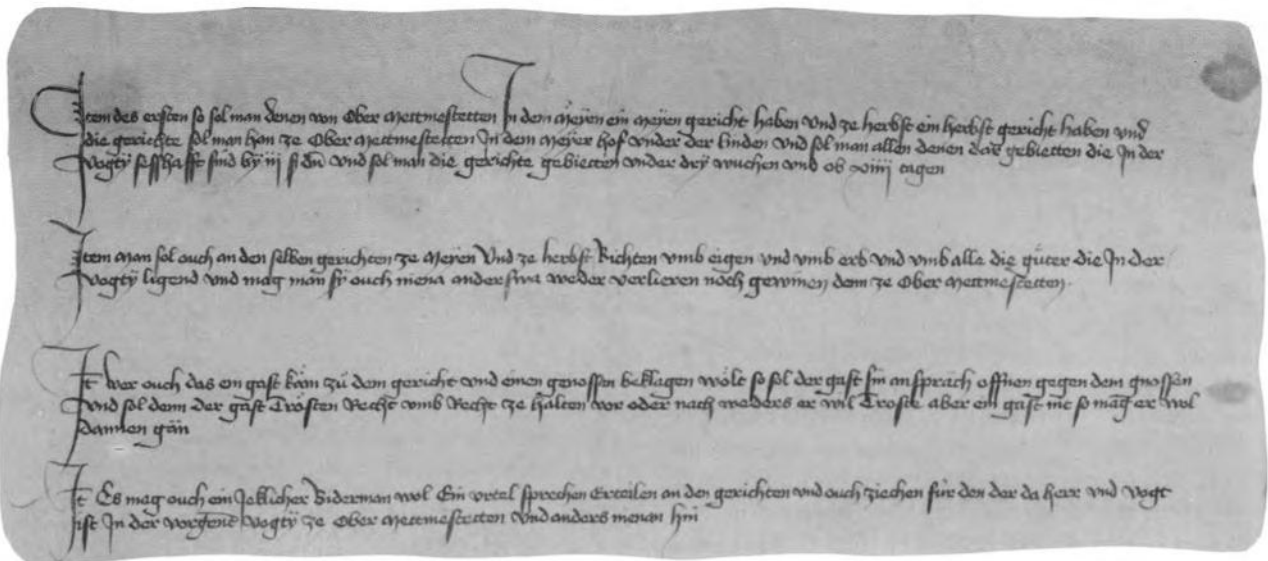 Item des ersten so sol man denen von Ober Mettmestetten In dem Meÿen ein meÿen gericht haben und ze herbst ein herbst gericht haben und
die gerichte sol man han ze Ober Mettmestetten In dem Meÿer hof under der linden und sol man allen denen dar gebietten die In der
vogtÿ sesshafft sind bÿ iij ß dn und sol man die gerichte gebietten under drÿ wuchen und ob xiiij tagen
Item man sol ouch an den selben gerichten ze Meÿen Und ze herbst Richten umb eigen und umb erb und umb alle die gůter die In der
vogtÿ ligend und mag man sÿ ouch niena anderswa weder verlieren noch gewinen denn ze Ober Mettmestetten.
It wer ouch das ein gast käm zů dem gericht und einen genossen beklagen wölt so sol der gast sin ansprach offnen gegen dem gnossen
und sol denn der gast Trösten Recht umb Recht ze halten vor oder nach weders er wil Troste aber ein gast nit so mag er wol
dannen gän
It Es mag ouch ein Jeklicher Biderman wol Ein urtel sprechen Erteilen an den gerichten und ouch ziechen für den der da herr und vogt
ist In der vorgent vogtÿ ze Ober Mettmestetten und anders nienan hin